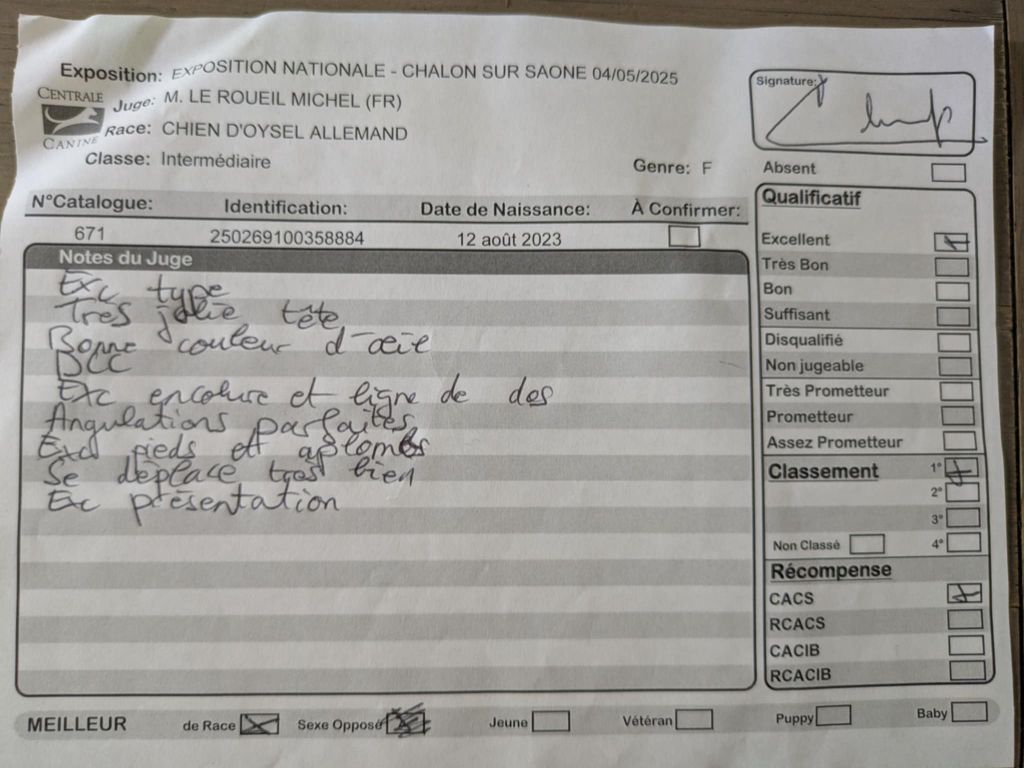 Exposition: EXPOSITION NATIONALE - CHALON SUR SAONE 04/05/2025
CENTRALE
CANINE
Juge: M. LE ROUEIL MICHEL (FR)
Race: CHIEN D'OYSEL ALLEMAND
Classe: Intermédiaire
Genre: F
Signature:
Absent
N°Catalogue: Identification: Date de Naissance: À Confirmer:
671 250269100358884 12 août 2023
Notes du Juge
Exc type
Tres jolie tête
Bonne couleur d'œil
Exc encolure et ligne de dos
Angulations parfaites
Exc pieds et aplombs
Se déplace tres bien
Exc présentation
Qualificatif
Excellent
Très Bon
Bon
Suffisant
Disqualifié
Non jugeable
Très Prometteur
Prometteur
Assez Prometteur
Classement 1°
2°
3°
Non Classé 4°
Récompense
CACS
RCACS
CACIB
RCACIB
MEILLEUR de Race Sexe Opposé Jeune Vétéran Puppy Baby